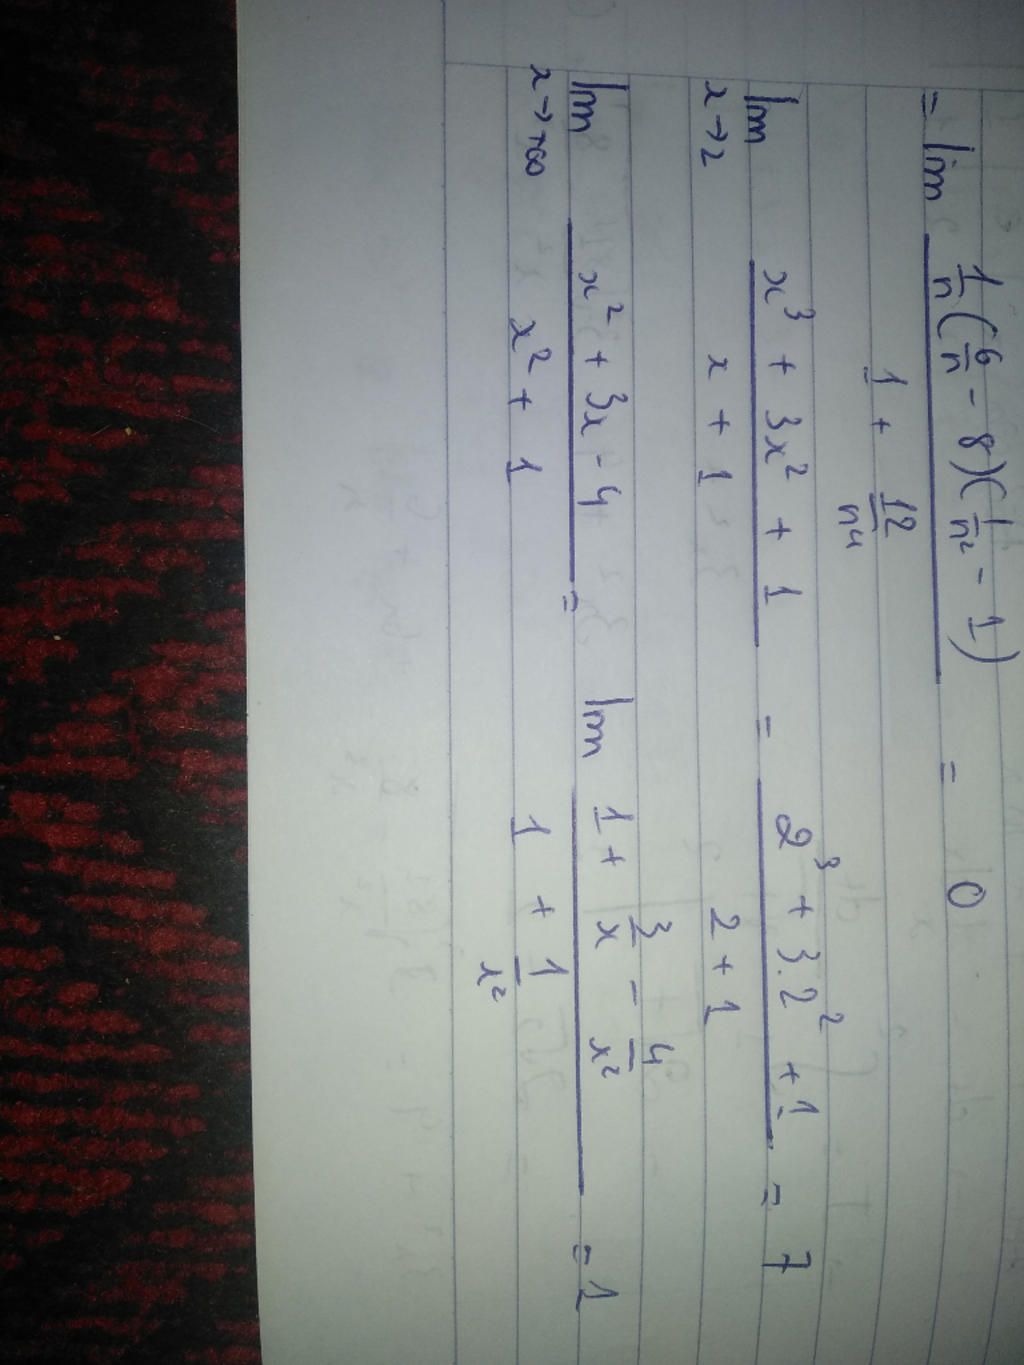 = lim \frac{\frac{1}{n}(\frac{6}{n} - 8)(\frac{1}{n^2} - 1)}{1 + \frac{12}{n^4}} = 0
lim_{x→2} \frac{x^3 + 3x^2 + 1}{x + 1} = \frac{2^3 + 3.2^2 + 1}{2 + 1} = 7
lim_{x→+∞} \frac{x^2 + 3x - 4}{x^2 + 1} = lim \frac{1 + \frac{3}{x} - \frac{4}{x^2}}{1 + \frac{1}{x^2}} = 1